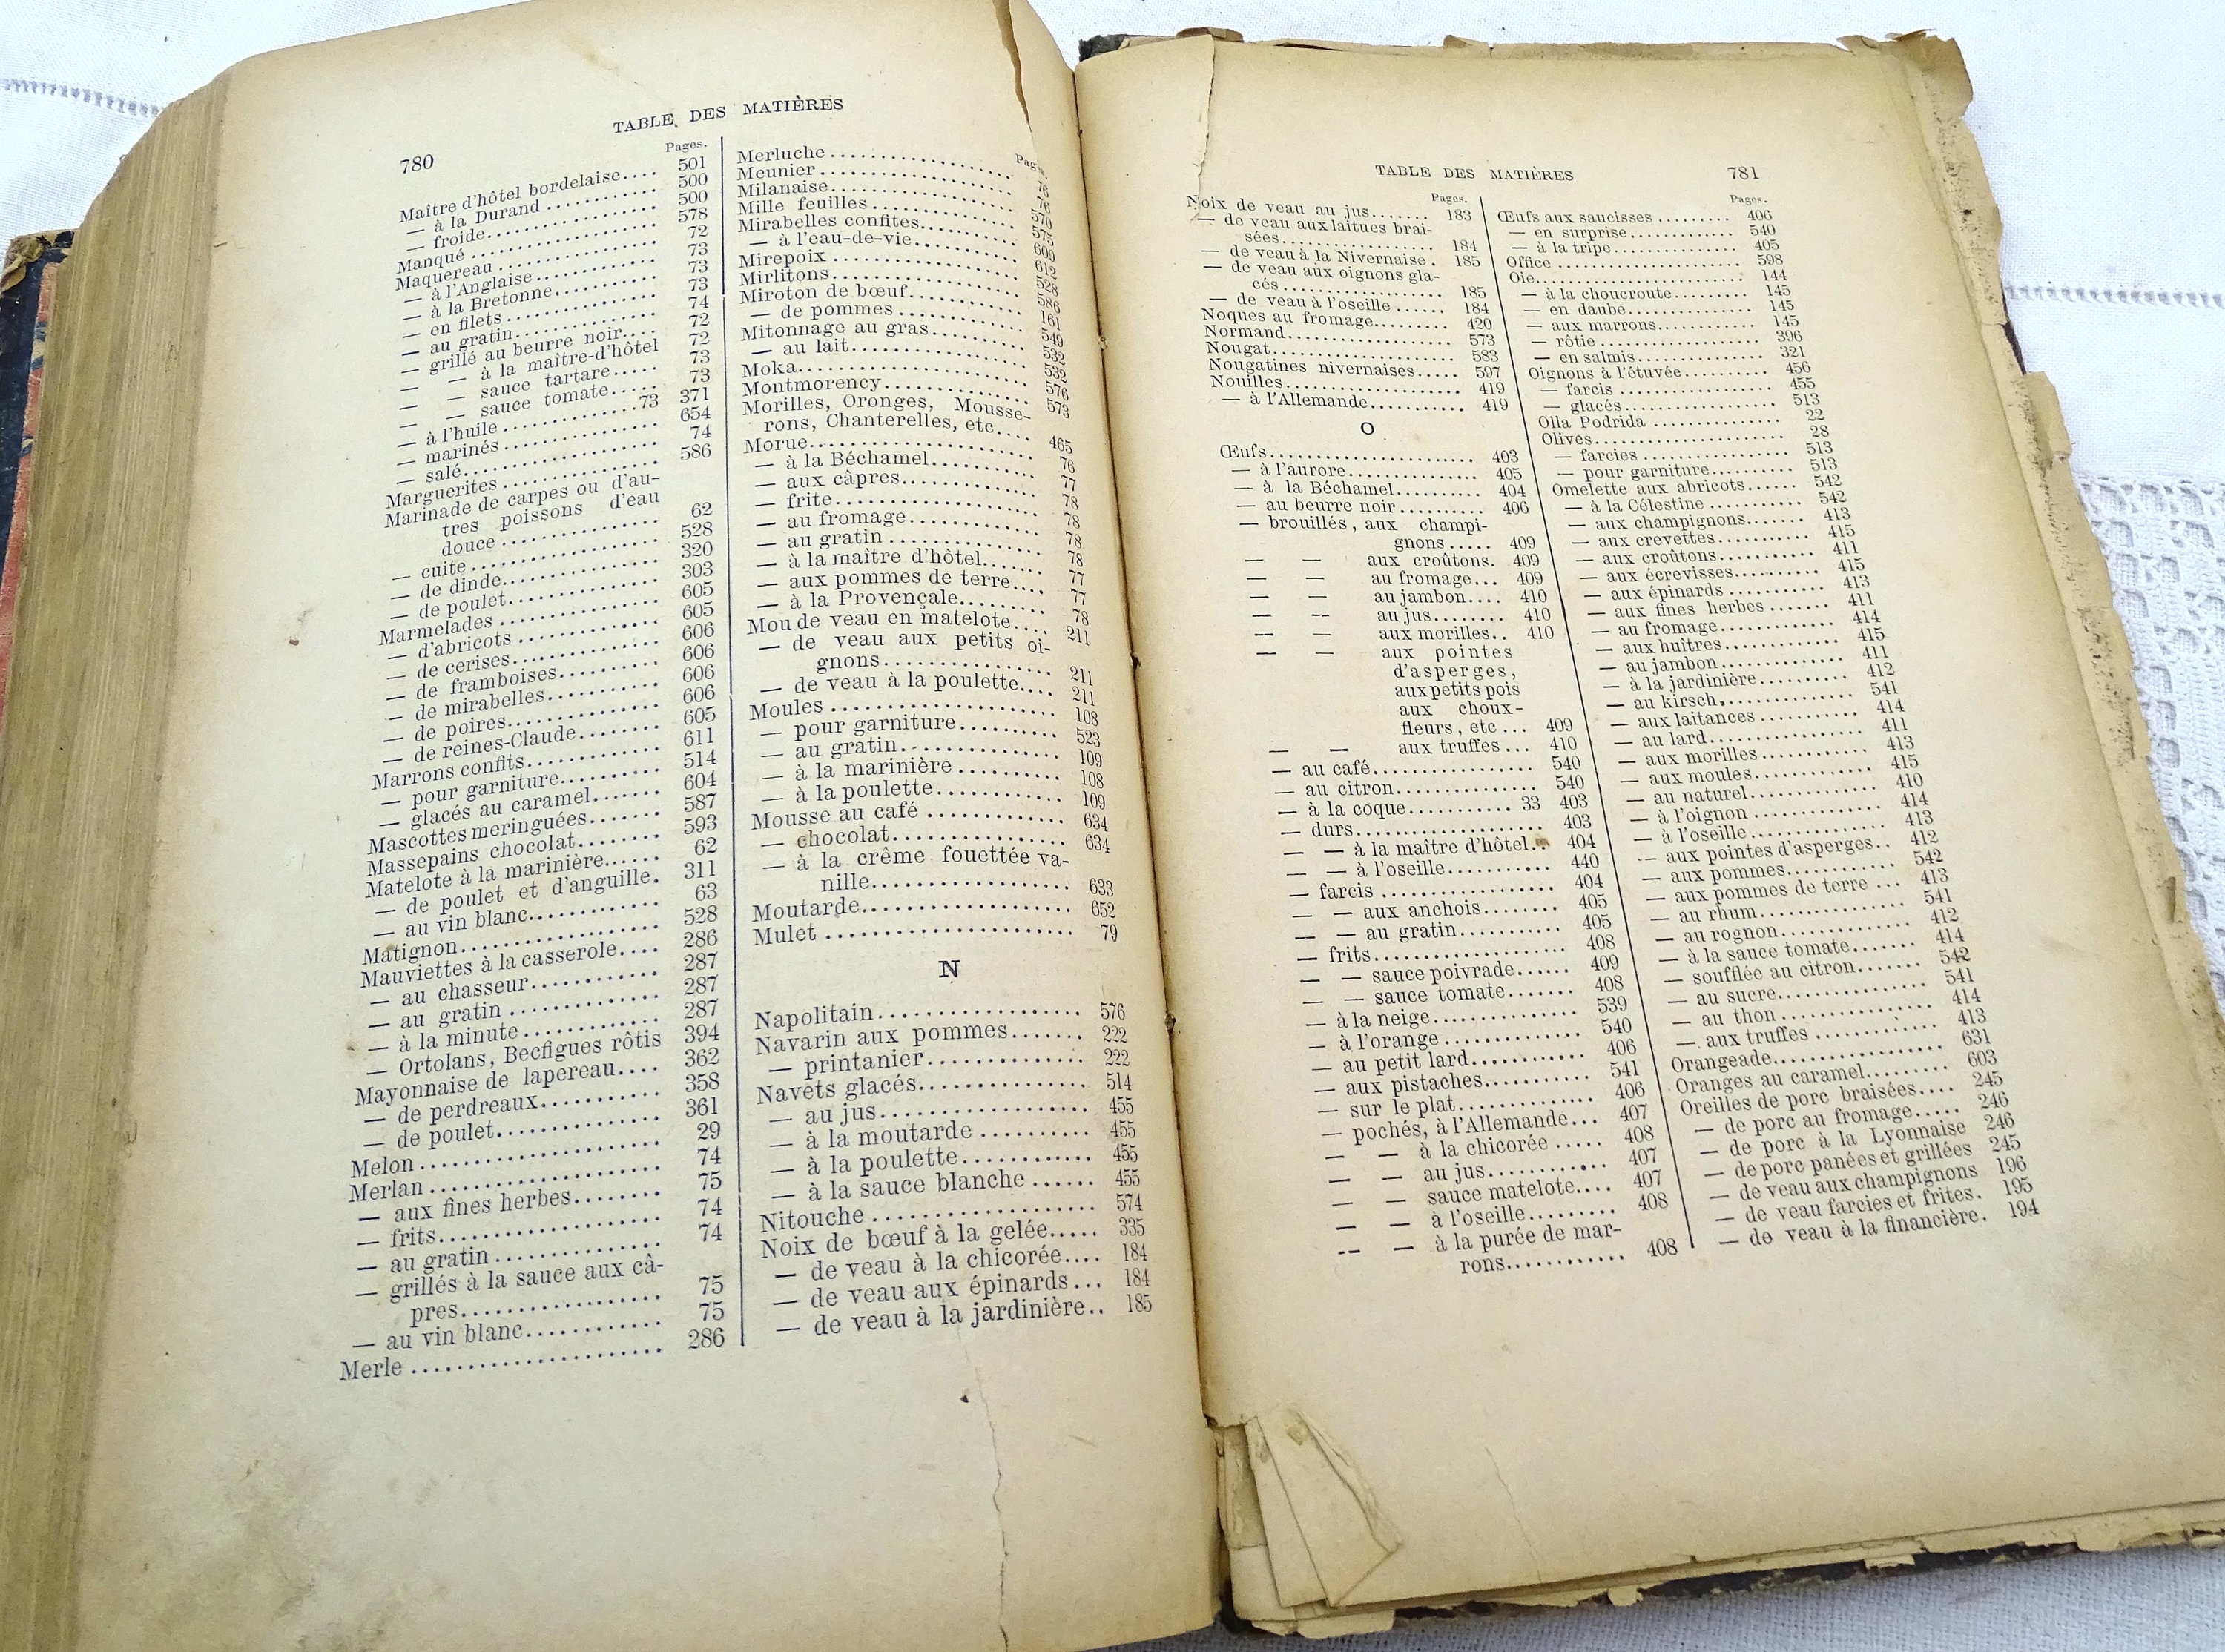 780
TABLE DES MATIÈRES
Pages.
Maître d'hôtel bordelaise.... 501
— à la Durand .......... 500
— froide.................. 500
Manqué .................... 578
Maquereau .................. 72
— à l'Anglaise............. 73
— à la Bretonne........... 73
— en filets ................ 73
— au gratin............... 74
— grillé au beurre noir.... 72
— — à la maître-d'hôtel 72
— — sauce tartare..... 73
— — sauce tomate..... 73
— à l'huile ............73 371
— marinés ................ 654
— salé..................... 74
Marguerites ................ 586
Marinade de carpes ou d'au-
tres poissons d'eau
douce ................ 62
— cuite .................. 528
— de dinde............... 320
— de poulet.............. 303
Marmelades ................ 605
— d'abricots .............. 605
— de cerises.............. 606
— de framboises.......... 606
— de mirabelles........... 606
— de poires............... 606
— de reines-Claude........ 605
Marrons confits............. 611
— pour garniture.......... 514
— glacés au caramel....... 604
Mascottes meringuées....... 587
Massepains chocolat........ 593
Matelote à la marinière...... 62
— de poulet et d'anguille. 311
— au vin blanc............ 63
Matignon................... 528
Mauviettes à la casserole.... 286
— au chasseur............ 287
— au gratin .............. 287
— à la minute ............ 287
— Ortolans, Becfigues rôtis 394
Mayonnaise de lapereau.... 362
— de perdreaux........... 358
— de poulet............... 361
Melon ...................... 29
Merlan ..................... 74
— aux fines herbes........ 75
— frits.................... 74
— au gratin .............. 74
— grillés à la sauce aux câ-
pres.................. 75
— au vin blanc............ 75
Merle ...................... 286
Pages.
Merluche .................. 78
Meunier ................... 78
Milanaise................... 576
Mille feuilles ............... 575
Mirabelles confites.......... 609
— à l'eau-de-vie........... 612
Mirepoix ................... 528
Mirlitons.................... 586
Miroton de bœuf............ 161
— de pommes ............ 549
Mitonnage au gras.......... 532
— au lait.................. 532
Moka....................... 576
Montmorency.............. 573
Morilles, Oronges, Mousse-
rons, Chanterelles, etc.... 465
Morue...................... 76
— à la Béchamel.......... 77
— aux câpres............. 78
— frite.................... 78
— au fromage............. 78
— au gratin ............... 78
— à la maître d'hôtel...... 77
— aux pommes de terre.... 77
— à la Provençale......... 78
Mou de veau en matelote.... 211
— de veau aux petits oi-
gnons................ 211
— de veau à la poulette.... 211
Moules .................... 108
— pour garniture.......... 523
— au gratin............... 109
— à la marinière .......... 108
— à la poulette............ 109
Mousse au café ............ 634
— chocolat................ 634
— à la crême fouettée va-
nille................... 633
Moutarde................... 652
Mulet ...................... 79
N
Napolitain.................. 576
Navarin aux pommes....... 222
— printanier............... 222
Navets glacés............... 514
— au jus................... 455
— à la moutarde .......... 455
— à la poulette............ 455
— à la sauce blanche ...... 455
Nitouche ................... 574
Noix de bœuf à la gelée..... 335
— de veau à la chicorée.... 184
— de veau aux épinards... 184
— de veau à la jardinière.. 185
TABLE DES MATIÈRES
781
Pages.
Noix de veau au jus........ 183
— de veau aux laitues brai-
sées.................. 184
— de veau à la Nivernaise . 185
— de veau aux oignons gla-
cés .................. 185
— de veau à l'oseille ...... 184
Noques au fromage......... 420
Normand................... 573
Nougat..................... 583
Nougatines nivernaises..... 597
Nouilles.................... 419
— à l'Allemande........... 419
O
Œufs....................... 403
— à l'aurore............... 405
— à la Béchamel.......... 404
— au beurre noir .......... 406
— brouillés, aux champi-
gnons ..... 409
— — aux croûtons. 409
— — au fromage... 409
— — au jambon.... 410
— — au jus........ 410
— — aux morilles.. 410
— — aux pointes
d'asperges,
aux petits pois
aux choux-
fleurs, etc ... 409
— — aux truffes ... 410
— au café................. 540
— au citron................ 540
— à la coque........... 33 403
— durs..................... 403
— — à la maître d'hôtel.. 404
— — à l'oseille........... 440
— farcis ................... 404
— — aux anchois........ 405
— — au gratin........... 405
— frits..................... 408
— — sauce poivrade...... 409
— — sauce tomate....... 408
— à la neige............... 539
— à l'orange .............. 540
— au petit lard............ 406
— aux pistaches........... 541
— sur le plat.............. 406
— pochés, à l'Allemande... 407
— — à la chicorée ..... 408
— — au jus............ 407
— — sauce matelote.... 407
— — à l'oseille......... 408
— — à la purée de mar-
rons............ 408
Pages.
Œufs aux saucisses ......... 406
— en surprise............. 540
— à la tripe............... 405
Office ...................... 598
Oie......................... 144
— à la choucroute......... 145
— en daube............... 145
— aux marrons............ 145
— rôtie ................... 396
— en salmis............... 321
Oignons à l'étuvée.......... 456
— farcis .................. 455
— glacés.................. 513
Olla Podrida ............... 22
Olives...................... 28
— farcies ................. 513
— pour garniture.......... 513
Omelette aux abricots...... 542
— à la Célestine ........... 542
— aux champignons....... 413
— aux crevettes........... 415
— aux croûtons........... 411
— aux écrevisses.......... 415
— aux épinards ........... 413
— aux fines herbes ....... 411
— au fromage............. 414
— aux huîtres............. 415
— au jambon.............. 411
— à la jardinière.......... 412
— au kirsch............... 541
— aux laitances ........... 414
— au lard................. 411
— aux morilles............ 413
— aux moules............. 415
— au naturel.............. 410
— à l'oignon .............. 414
— à l'oseille............... 413
— aux pointes d'asperges.. 412
— aux pommes............ 542
— aux pommes de terre ... 413
— au rhum................ 541
— au rognon.............. 412
— à la sauce tomate....... 414
— soufflée au citron....... 542
— au sucre................ 541
— au thon................. 414
— aux truffes ............. 413
Orangeade.................. 631
Oranges au caramel......... 603
Oreilles de porc braisées.... 245
— de porc au fromage..... 246
— de porc à la Lyonnaise 246
— de porc panées et grillées 245
— de veau aux champignons 196
— de veau farcies et frites. 195
— de veau à la financière. 194